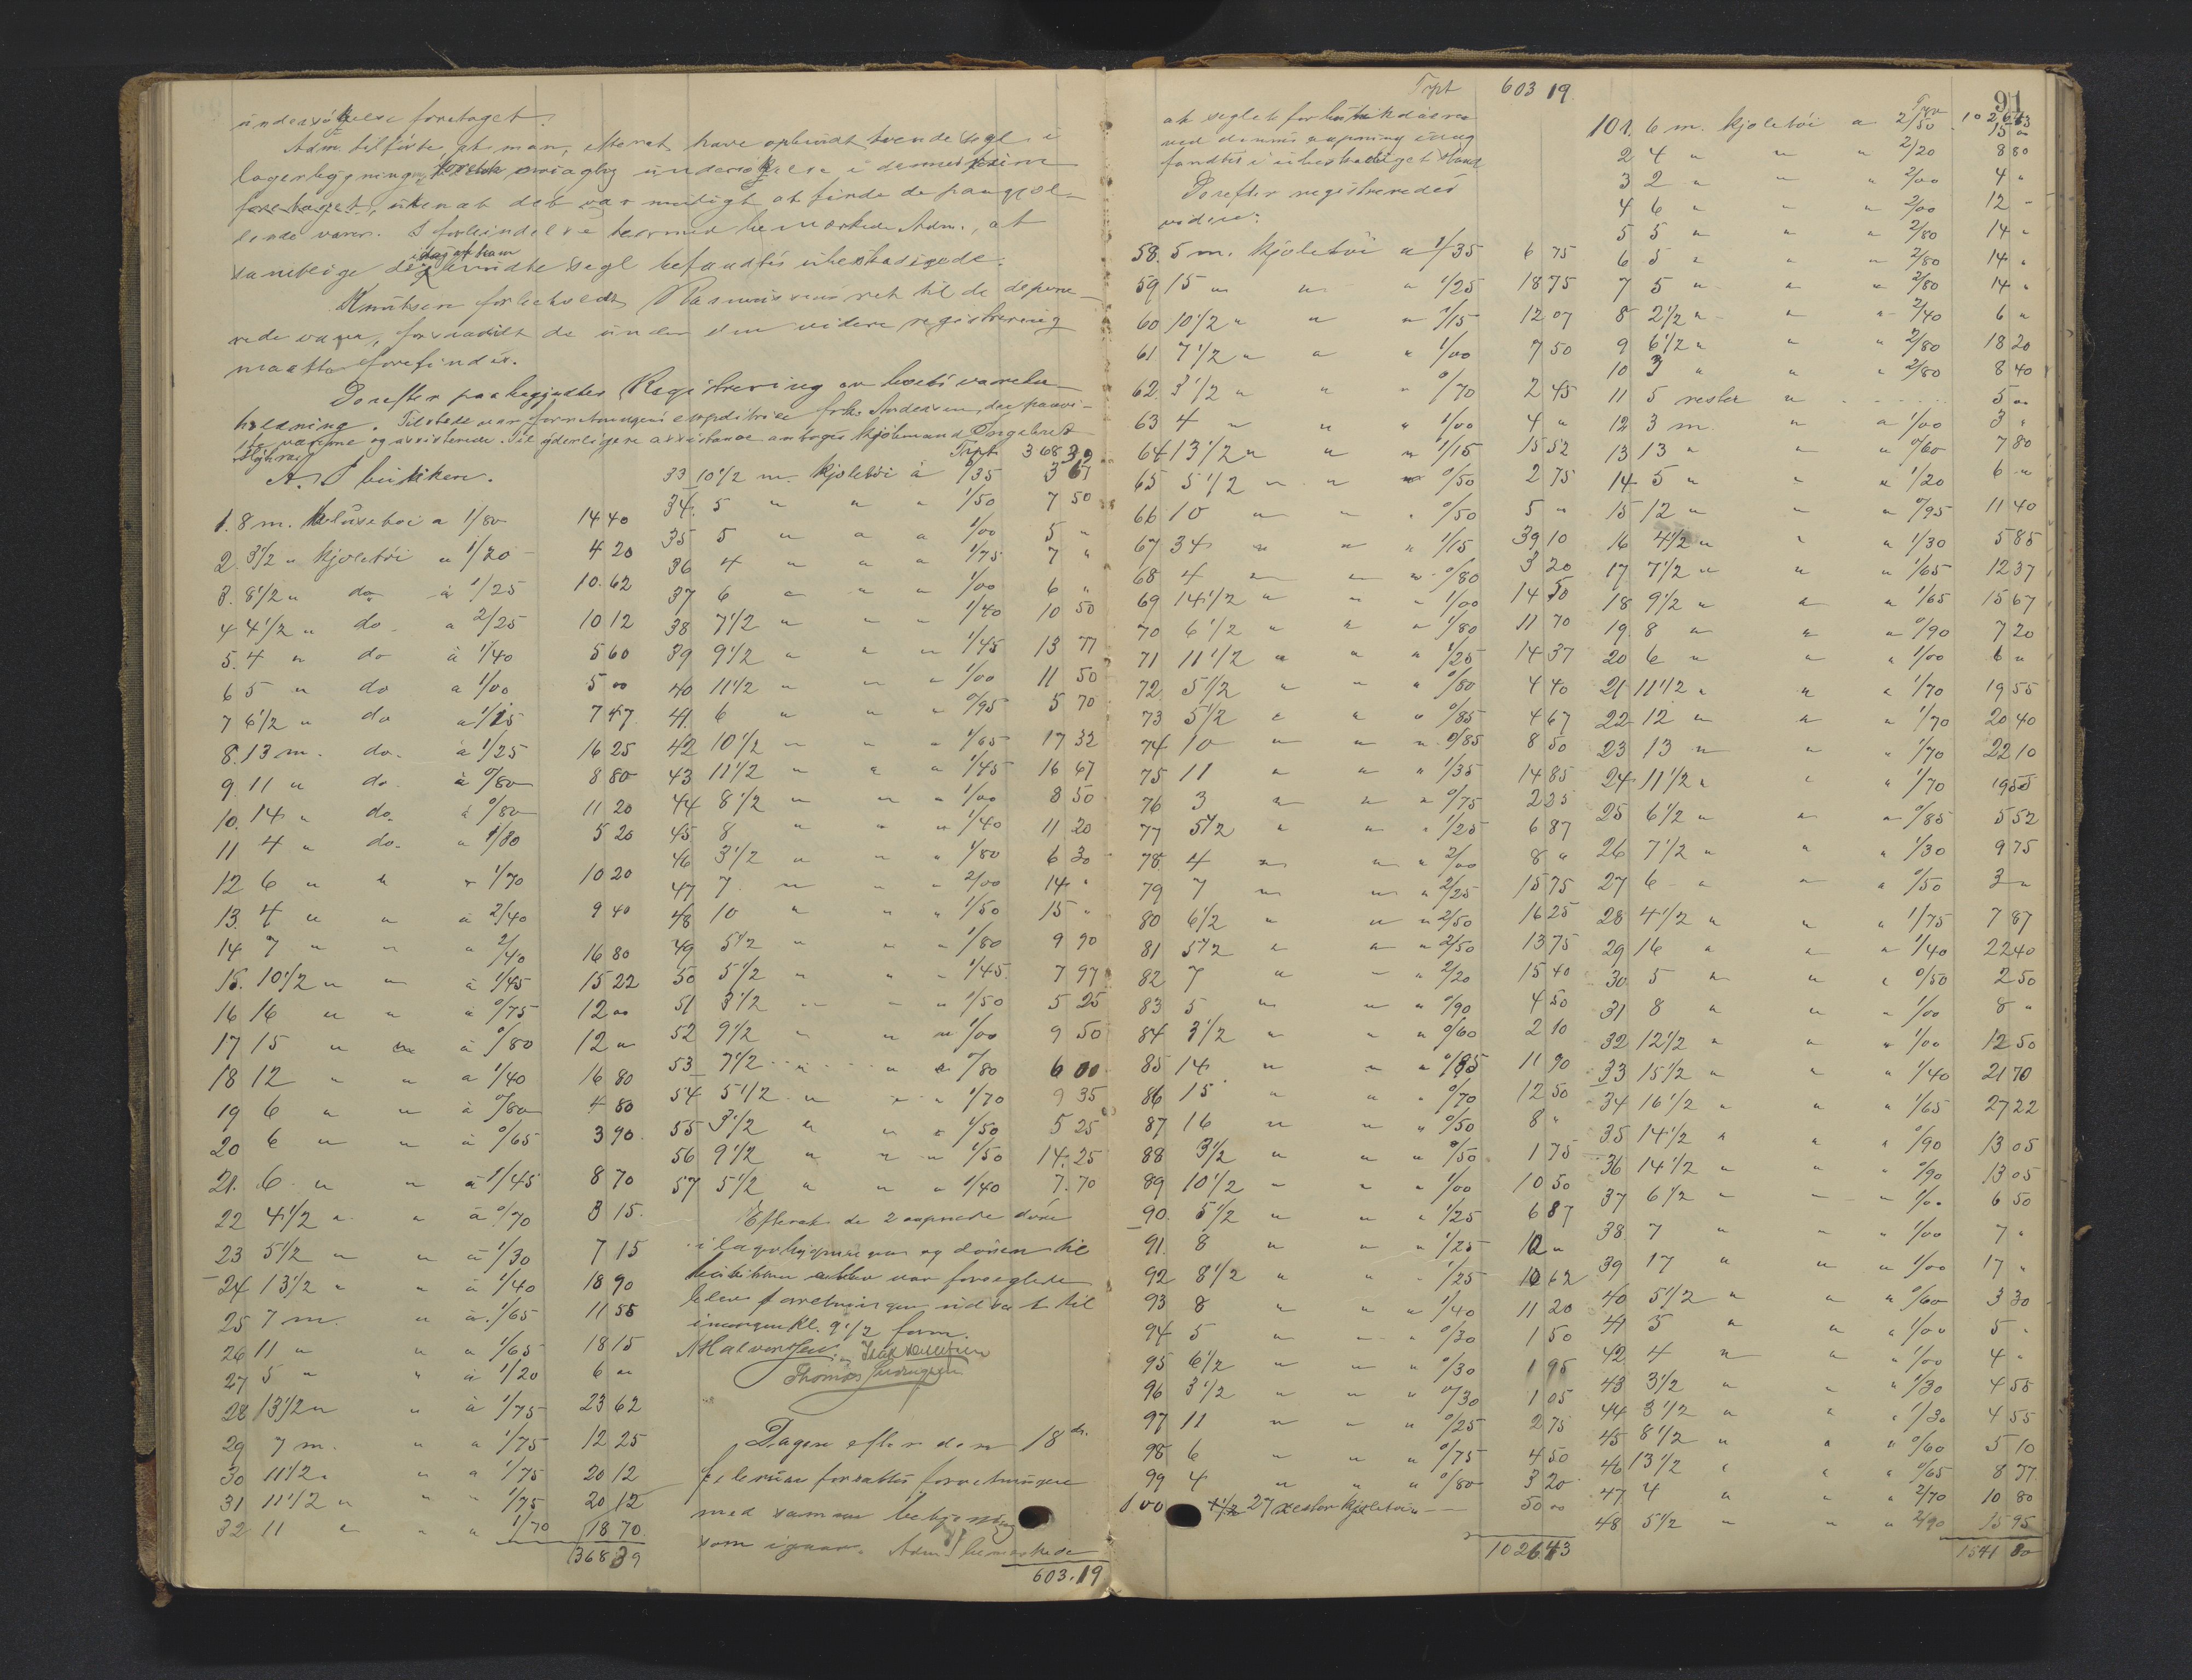 undersøgelse foretaget.
Adm. tilførte, at man, efterat have opbrudt tvende segl i
lagerbygningen, foretok undersøgelse i dennes
foretaget, uten at det var muligt at finde de paagjæl-
dende varer. I forbindelse hermed bemærkede Adm., at
samtlige idag af ham brudte segl befandtes ubeskadigede.
Knutsen forbeholdt Rasmussens ret til de depone-
rede varer, forsaavidt de under den videre registrering
maatte forefindes.
Derefter paabegyndtes Registrering av boets varebe-
holdning. Tilstede var forretningens expeditrice frk. Andersen, der paavi-
ste varerne og assisterede. Til yderligere assistance antoges kjøbmand Ingebret
A. I butiken.
1. 8 m. blusetøi a 1/80 14 40
2. 3 1/2 " kjoletøi a 1/20 4 20
3. 8 1/2 " do. à 1/25 10.62
4 4 1/2 " do. a 2/25 10 12
5. 4 " do à 1/40 5 60
6 5 " do a 1/00 5 00
7 6 1/2 " do a 1/15 7 47
8. 13 m. do. à 1/25 16 25
9. 11 " do. à 0/80 8 80
10. 14 " do. à 0/80 11 20
11 4 " do. a 1/30 5 20
12 6 " " " 1/70 10 20
13. 4 " " à 2/40 9 40
14 7 " " " 2/40 16 80
15. 10 1/2 " " à 1/45 15 22
16 16 " " à 0/75 12 00
17 15 " " à 0/80 12 "
18 12 " " a 1/40 16 80
19 6 " " à 0/80 4 80
20 6 " " à 0/65 3 90
21. 6 " " à 1/45 8 70
22 4 1/2 " " à 0/70 3 15
23 5 1/2 " " à 1/30 7 15
24 13 1/2 " " à 1/40 18 90
25 7 m. " à 1/65 11 55
26 11 " " a 1/65 18 15
27 5 " " à 1/20 6 "
28 13 1/2 " " à 1/75 23 62
29 7 m. " a 1/75 12 25
30 11 1/2 " " a 1/75 20 12
31 11 1/2 " " " 1/75 20 12
32 11 " " " 1/70 18 70
368 39
Trpt 368 39
33 10 1/2 m. kjoletøi à 0/35 3 67
34. 5 " " " 1/50 7 50
35 5 " " " 1/00 5 "
36 4 " " " 1/75 7 "
37 6 " " " 1/00 6 "
38 7 1/2 " " " 1/40 10 50
39 9 1/2 " " " 1/45 13 77
40 11 1/2 " " " 1/00 11 50
41. 6 " " " 0/95 5 70
42 10 1/2 " " " 1/65 17 32
43 11 1/2 " " " 1/45 16 67
44 8 1/2 " " " 1/00 8 50
45 8 " " " 1/40 11 20
46 3 1/2 " " " 1/80 6 30
47 7 " " " 2/00 14 "
48 10 " " " 1/50 15 "
49 5 1/2 " " " 1/80 9 90
50 5 1/2 " " " 1/45 7 97
51 3 1/2 " " " 1/50 5 25
52 9 1/2 " " " 1/00 9 50
53 7 1/2 " " " 0/80 6 00
54 5 1/2 " " " 1/70 9 35
55 3 1/2 " " " 1/50 5 25
56 9 1/2 " " " 1/50 14.25
57 5 1/2 " " " 1/40 7.70
Efterat de 2 aapnede døre
i lagerbygningen og døren til
butikken var forseglede
blev forretningen udsat til
imorgen kl. 9 1/2 form.
N Halvorsen
Thomas
Dagen efter den 18 de
februar fortsattes forretningen
med samme betjening
som igaar. Adm. bemerkede
603.19
Trpt 603 19
91
at seglet for butikdøren
ved dennes aapning idag
fandtes i ubeskadiget stand
Derefter registreredes
videre:
58. 5 m. kjoletøi a 1/35 6 75
59 15 " " " 1/25 18 75
60 10 1/2 " " " 1/15 12 07
61 7 1/2 " " " 1/00 7 50
62. 3 1/2 " " " 0/70 2 45
63 4 " " " 1/00 4 "
64 13 1/2 " " " 1/15 15 52
65 5 1/2 " " " 0/50 2 75
66 10 " " " 0/50 5 "
67 34 " " " 1/15 39 10
68 4 " " " 0/80 3 20
69 14 1/2 " " " 1/00 14 50
70 6 1/2 " " " 1/80 11 70
71 11 1/2 " " " 1/25 14 37
72 5 1/2 " " " 0/80 4 40
73 5 1/2 " " " 0/85 4 67
74 10 " " " 0/85 8 50
75 11 " " " 1/35 14 85
76 3 " " " 0/75 2 25
77 5 1/2 " " " 1/25 6 87
78 4 " " " 2/00 8 "
79 7 " " " 2/25 15 75
80 6 1/2 " " " 2/50 16 25
81 5 1/2 " " " 2/50 13 75
82 7 " " " 2/20 15 40
83 5 " " " 0/90 4 50
84 3 1/2 " " " 0/60 2 10
85 14 " " " 0/85 11 90
86 15 " " " 0/70 12 50
87 16 " " " 0/50 8 "
88 3 1/2 " " " 0/50 1 75
89 10 1/2 " " " 1/00 10 50
90. 5 1/2 " " " 1/25 6 87
91. 8 " " " 1/25 10 "
92 8 1/2 " " " 1/25 10 62
93 8 " " " 1/40 11 20
94 5 " " " 0/30 1 50
95 6 1/2 " " " 0/30 1 95
96 3 1/2 " " " 0/30 1 05
97 11 " " " 0/25 2 75
98 6 " " " 0/75 4 50
99 4 " " " 0/80 3 20
1.00 27 rester kjoletøi 50 00
1026 43
Trpt 1026 43
101. 6 m. kjoletøi a 2/50 15 "
2 4 " " " 2/20 8 80
3 2 " " " 2/00 4 "
4 6 " " " 2/00 12 "
5 5 " " " 2/80 14 "
6 5 " " " 2/80 14 "
7 5 " " " 2/80 14 "
8 2 1/2 " " " 2/40 6 "
9 6 1/2 " " " 2/80 18 20
10 3 " " " 2/80 8 40
11 5 rester " 5 "
12 3 m. " a 1/00 3 "
13 13 " " " 0/60 7 80
14 5 " " " 1/20 6 "
15 12 " " " 0/95 11 40
16 4 1/2 " " " 1/30 5 85
17 7 1/2 " " " 1/65 12 37
18 9 1/2 " " " 1/65 15 67
19 8 " " " 0/90 7 20
20 6 " " " 1/00 6 "
21 11 1/2 " " " 1/70 19 55
22 12 " " " 1/70 20 40
23 13 " " " 1/70 22 10
24 11 1/2 " " " 1/70 19 55
25 6 1/2 " " " 0/85 5 52
26 7 1/2 " " " 1/30 9 75
27 6 " " " 0/50 3 "
28 4 1/2 " " " 1/75 7 87
29 16 " " " 1/40 22 40
30 5 " " " 0/50 2 50
31 8 " " " 1/00 8 "
32 12 1/2 " " " 1/00 12 50
33 15 1/2 " " " 1/40 21 70
34 16 1/2 " " " 1/65 27 22
35 14 1/2 " " " 0/90 13 05
36 14 1/2 " " " 0/90 13 05
37 6 1/2 " " " 1/00 6 50
38. 7 " " " 1/00 7 "
39 17 " " " 1/00 17 "
40 5 1/2 " " " 0/60 3 30
41 5 " " " 1/00 5 "
42 4 " " " 1/00 4 "
43 3 1/2 " " " 1/30 4 55
44 3 1/2 " " " 1/30 4 55
45 8 1/2 " " " 0/60 5 10
46 13 1/2 " " " 0/65 8 77
47 4 " " " 2/70 10 80
48 5 1/2 " " " 2/90 15 95
1541 80